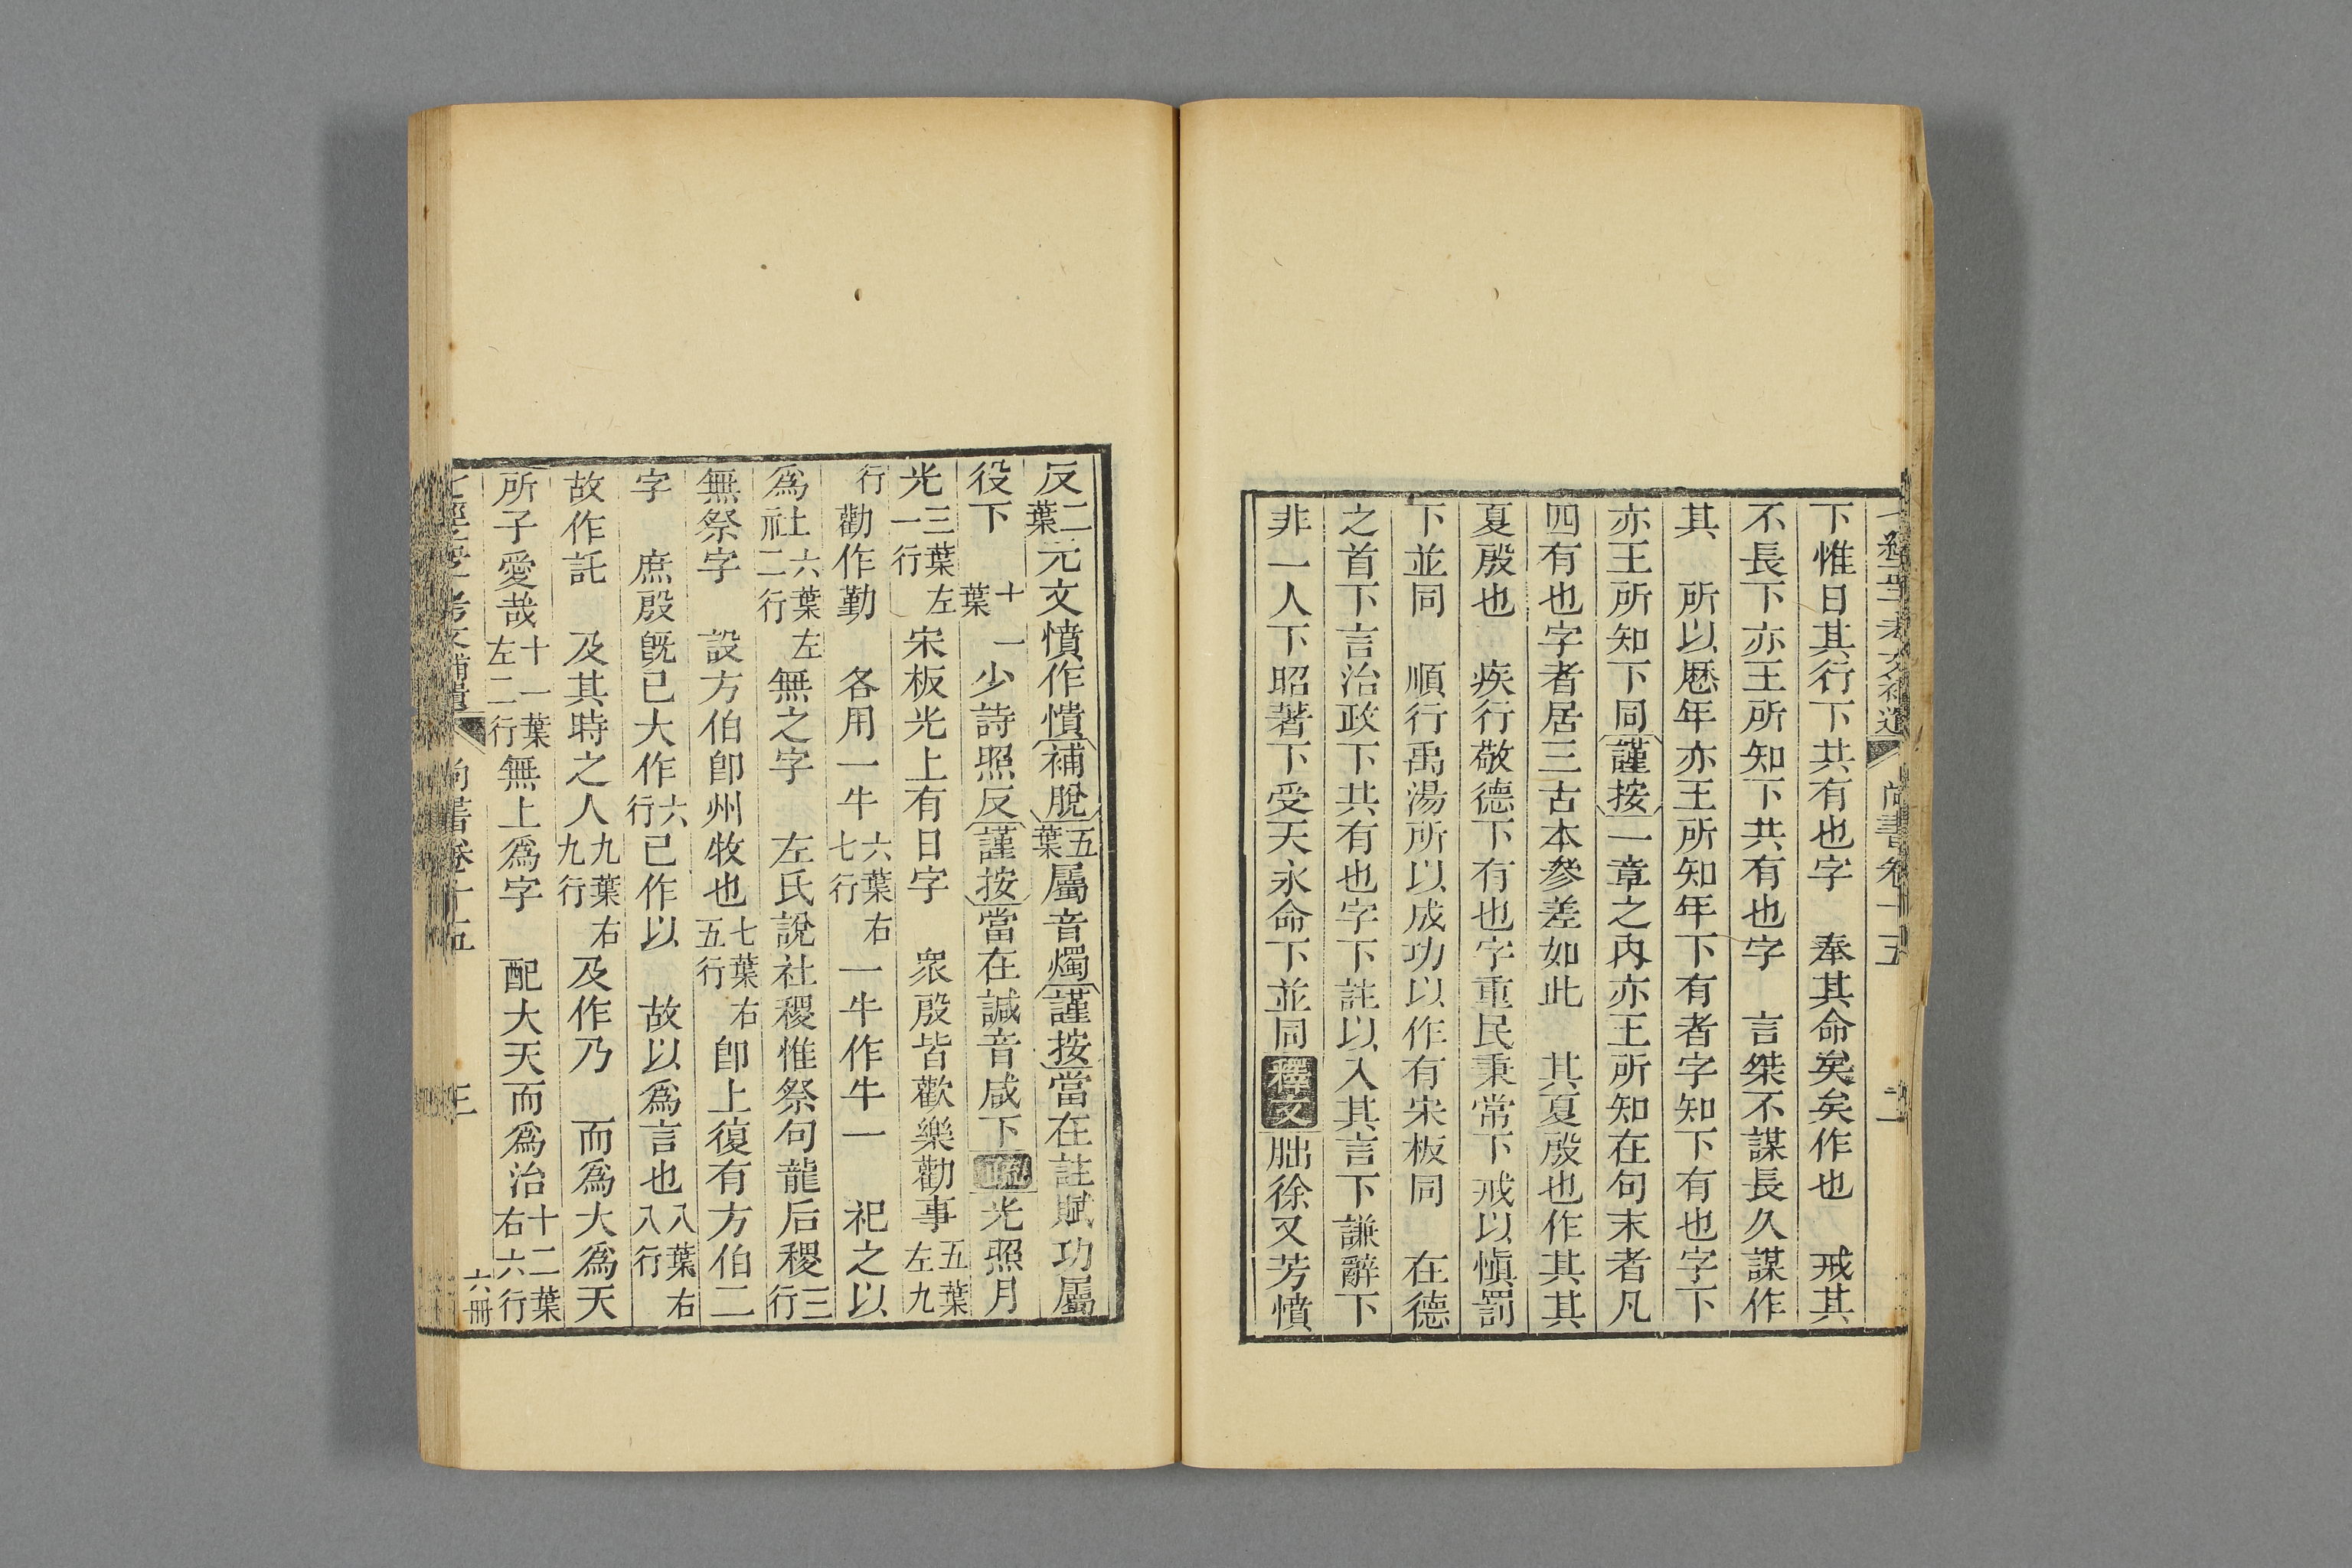 下惟日其行下共有也字　奉其命矣矣作也　戒其
不長下亦王所知下共有也字　言桀不謀長久謀作
其　所以歷年亦王所知年下有者字知下有也字下
亦王所知下同謹按一章之内亦王所知在句末者凡
四有也字者居三古本參差如此　其夏殷也作其其
夏殷也　疾行敬德下有也字重民秉常下戒以愼罰
下並同　順行禹湯所以成功以作有宋板同　在德
之首下言治政下共有也字下註以入其言下謙辭下
非一人下昭著下受天永命下並同釋文朏徐又芳憤
反二葉元文憤作憒補脫五葉屬音燭謹按當在註賦功屬
役下　十一葉少詩照反謹按當在諴音咸下疏光照月
光三葉左一行宋板光上有日字　衆殷皆歡樂勸事五葉左九
行勸作勤　各用一牛六葉右七行一牛作牛一　祀之以
爲社六葉左二行無之字　左氏說社稷惟祭句龍后稷三行
無祭字　設方伯卽州牧也七葉右五行卽上復有方伯二
字　庶殷旣已大作六行已作以　故以爲言也八葉右八行
故作託　及其時之人九葉右九行及作乃　而爲大爲天
所子愛哉十一葉左二行無上爲字　配大天而爲治十二葉右六行
尚書卷十五
三
六冊